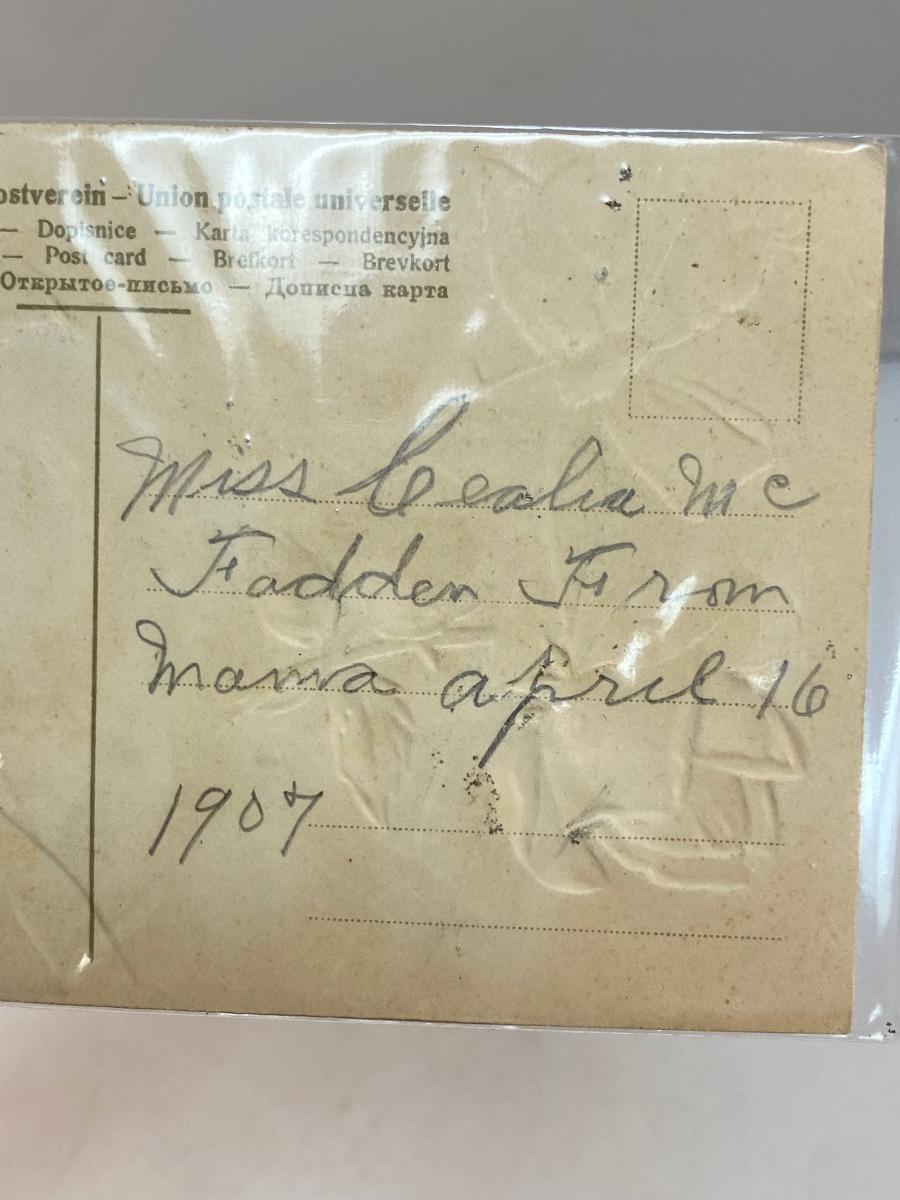 ostverein – Union postale universelle
— Dopisnice — Karta korespondencyjna
— Post card — Brefkort — Brevkort
Открытое-письмо — Дописна карта
Miss Cealia Mc
Fadden From
Mama april 16
1907